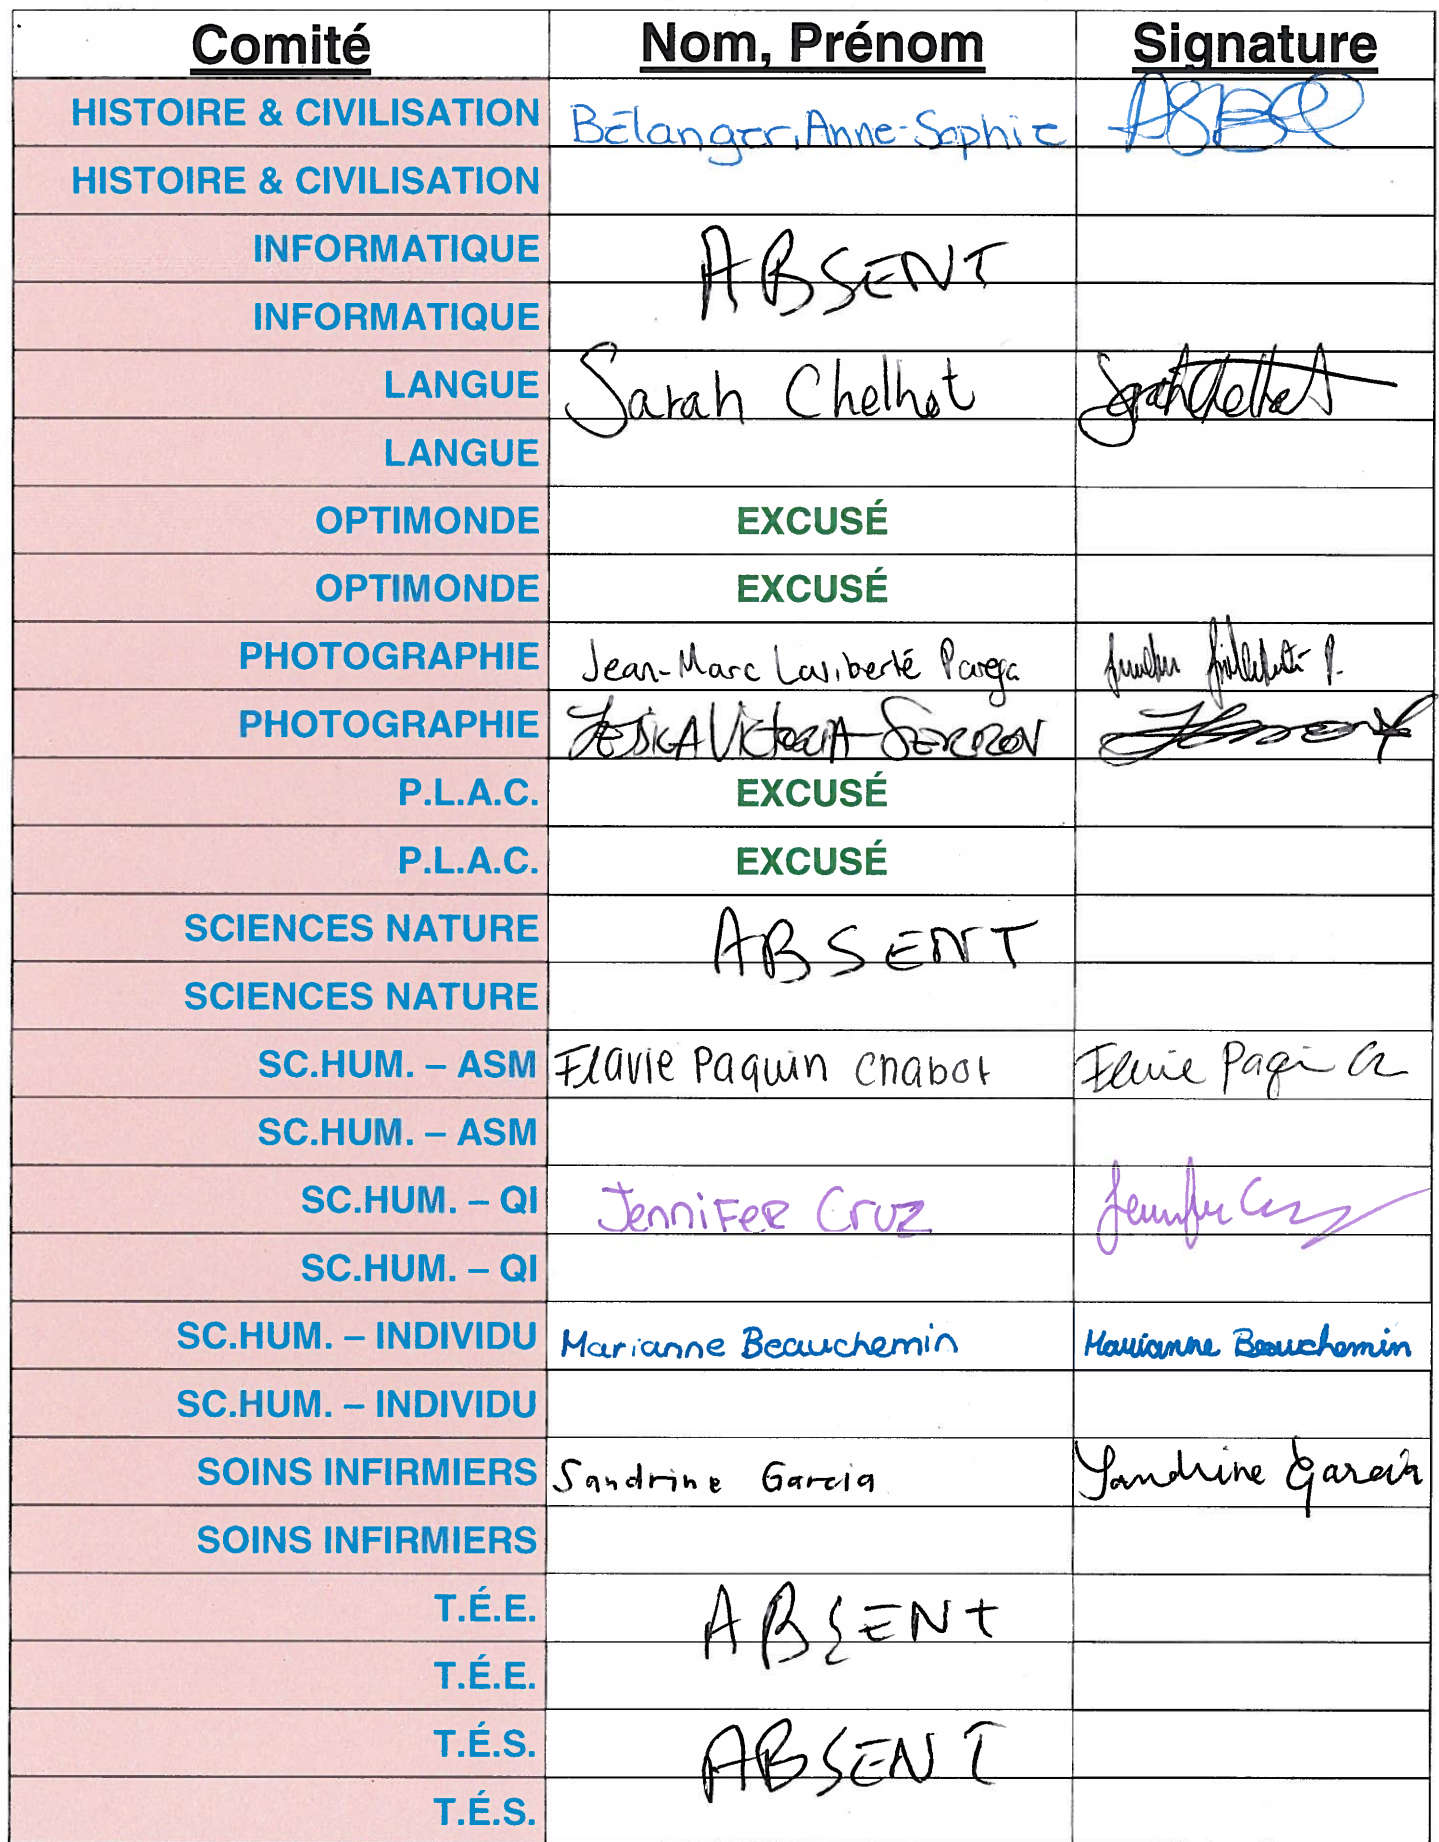 Comité Nom, Prénom Signature
HISTOIRE & CIVILISATION Bélanger, Anne-Sophie
HISTOIRE & CIVILISATION
INFORMATIQUE ABSENT
INFORMATIQUE
LANGUE Sarah Chelhot Sarah Chelhot
LANGUE
OPTIMONDE EXCUSÉ
OPTIMONDE EXCUSÉ
PHOTOGRAPHIE Jean-Marc Laliberté
PHOTOGRAPHIE
P.L.A.C. EXCUSÉ
P.L.A.C. EXCUSÉ
SCIENCES NATURE ABSENT
SCIENCES NATURE
SC.HUM. – ASM Flavie Paquin Chabot
SC.HUM. – ASM
SC.HUM. – QI Jennifer Cruz Jennifer Cruz
SC.HUM. – QI
SC.HUM. – INDIVIDU Marianne Beauchemin Marianne Beauchemin
SC.HUM. – INDIVIDU
SOINS INFIRMIERS Sandrine Garcia Sandrine Garcia
SOINS INFIRMIERS
T.É.E. ABSENT
T.É.E.
T.É.S. ABSENT
T.É.S.